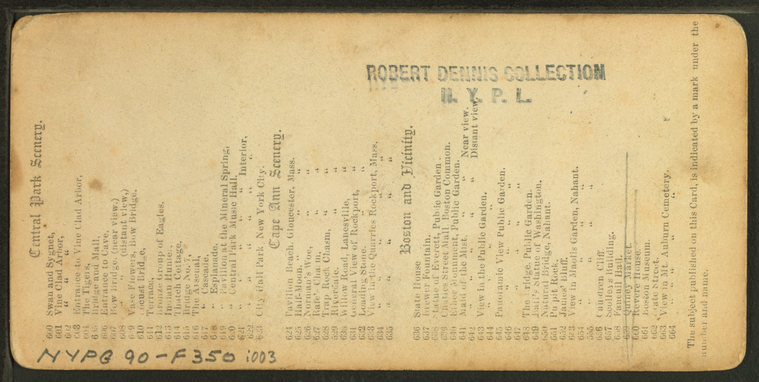 ROBERT DENNIS COLLECTION
N. Y. P. L.
Central Park Scenery.
600 Swan and Sygnet,
601 Vine Clad Arbor,
602 " "
603 Entrance to Vine Clad Arbor,
604 The Tigers,
605 Bridge and Mall,
606 Entrance to Cave,
607 Bow Bridge, (near view,)
608 " " (distant view,)
609 Vase Flowers, Bow Bridge,
610 Rustic Bridge,
611 Terrace,
612 Bronze Group of Eagles,
613
614 Thatch Cottage,
615 Bridge No. 7,
616 The Arsenal,
617 " Cascade,
618 " Esplanade,
619 Pavilion at the Mineral Spring,
620 Central Park Music Hall,
621 " " " Interior,
622 " " "
623 City Hall Park New York City.
Cape Ann Scenery.
624 Pavilion Beach, Gloucester, Mass.
625 Half-Moon, " "
626 Norman's Woe, " "
627 Rafe's Chasm, " "
628 Trap Rock Chasm, " "
629 " "
630 Willow Road, Lanesville, "
631 General View of Rockport, "
632 Loading Stone, "
633 View in the Quarries Rockport, Mass,
634 " " " "
635 " " " "
Boston and Vicinity.
636 State House.
637 Brewer Fountain.
638 Statue of Everett, Public Garden
639 Charles Street Mall, Boston Common.
640 Ether Monument, Public Garden.
641 Maid of the Mist. Near view.
642 " " Distant view.
643 View in the Public Garden.
644 " " "
645 Panoramic View Public Garden.
646 " " "
647 " " "
648 The Bridge, Public Garden.
649 Ball's Statue of Washington.
650 Natural Bridge, Nahant.
651 Pulpit Rock, "
652 Bluff, "
653 View in Maolis Garden, Nahant.
654 " " " "
655 " " " "
656 Cliff "
657 Building.
658
659 Quincy Market.
660 Revere House.
661 Boston Museum.
662 State Street.
663 View in Mt. Auburn Cemetery.
664 " " "
The subject published on this Card, is indicated by a mark under the
number and name.
NYPG 90-F350 1003